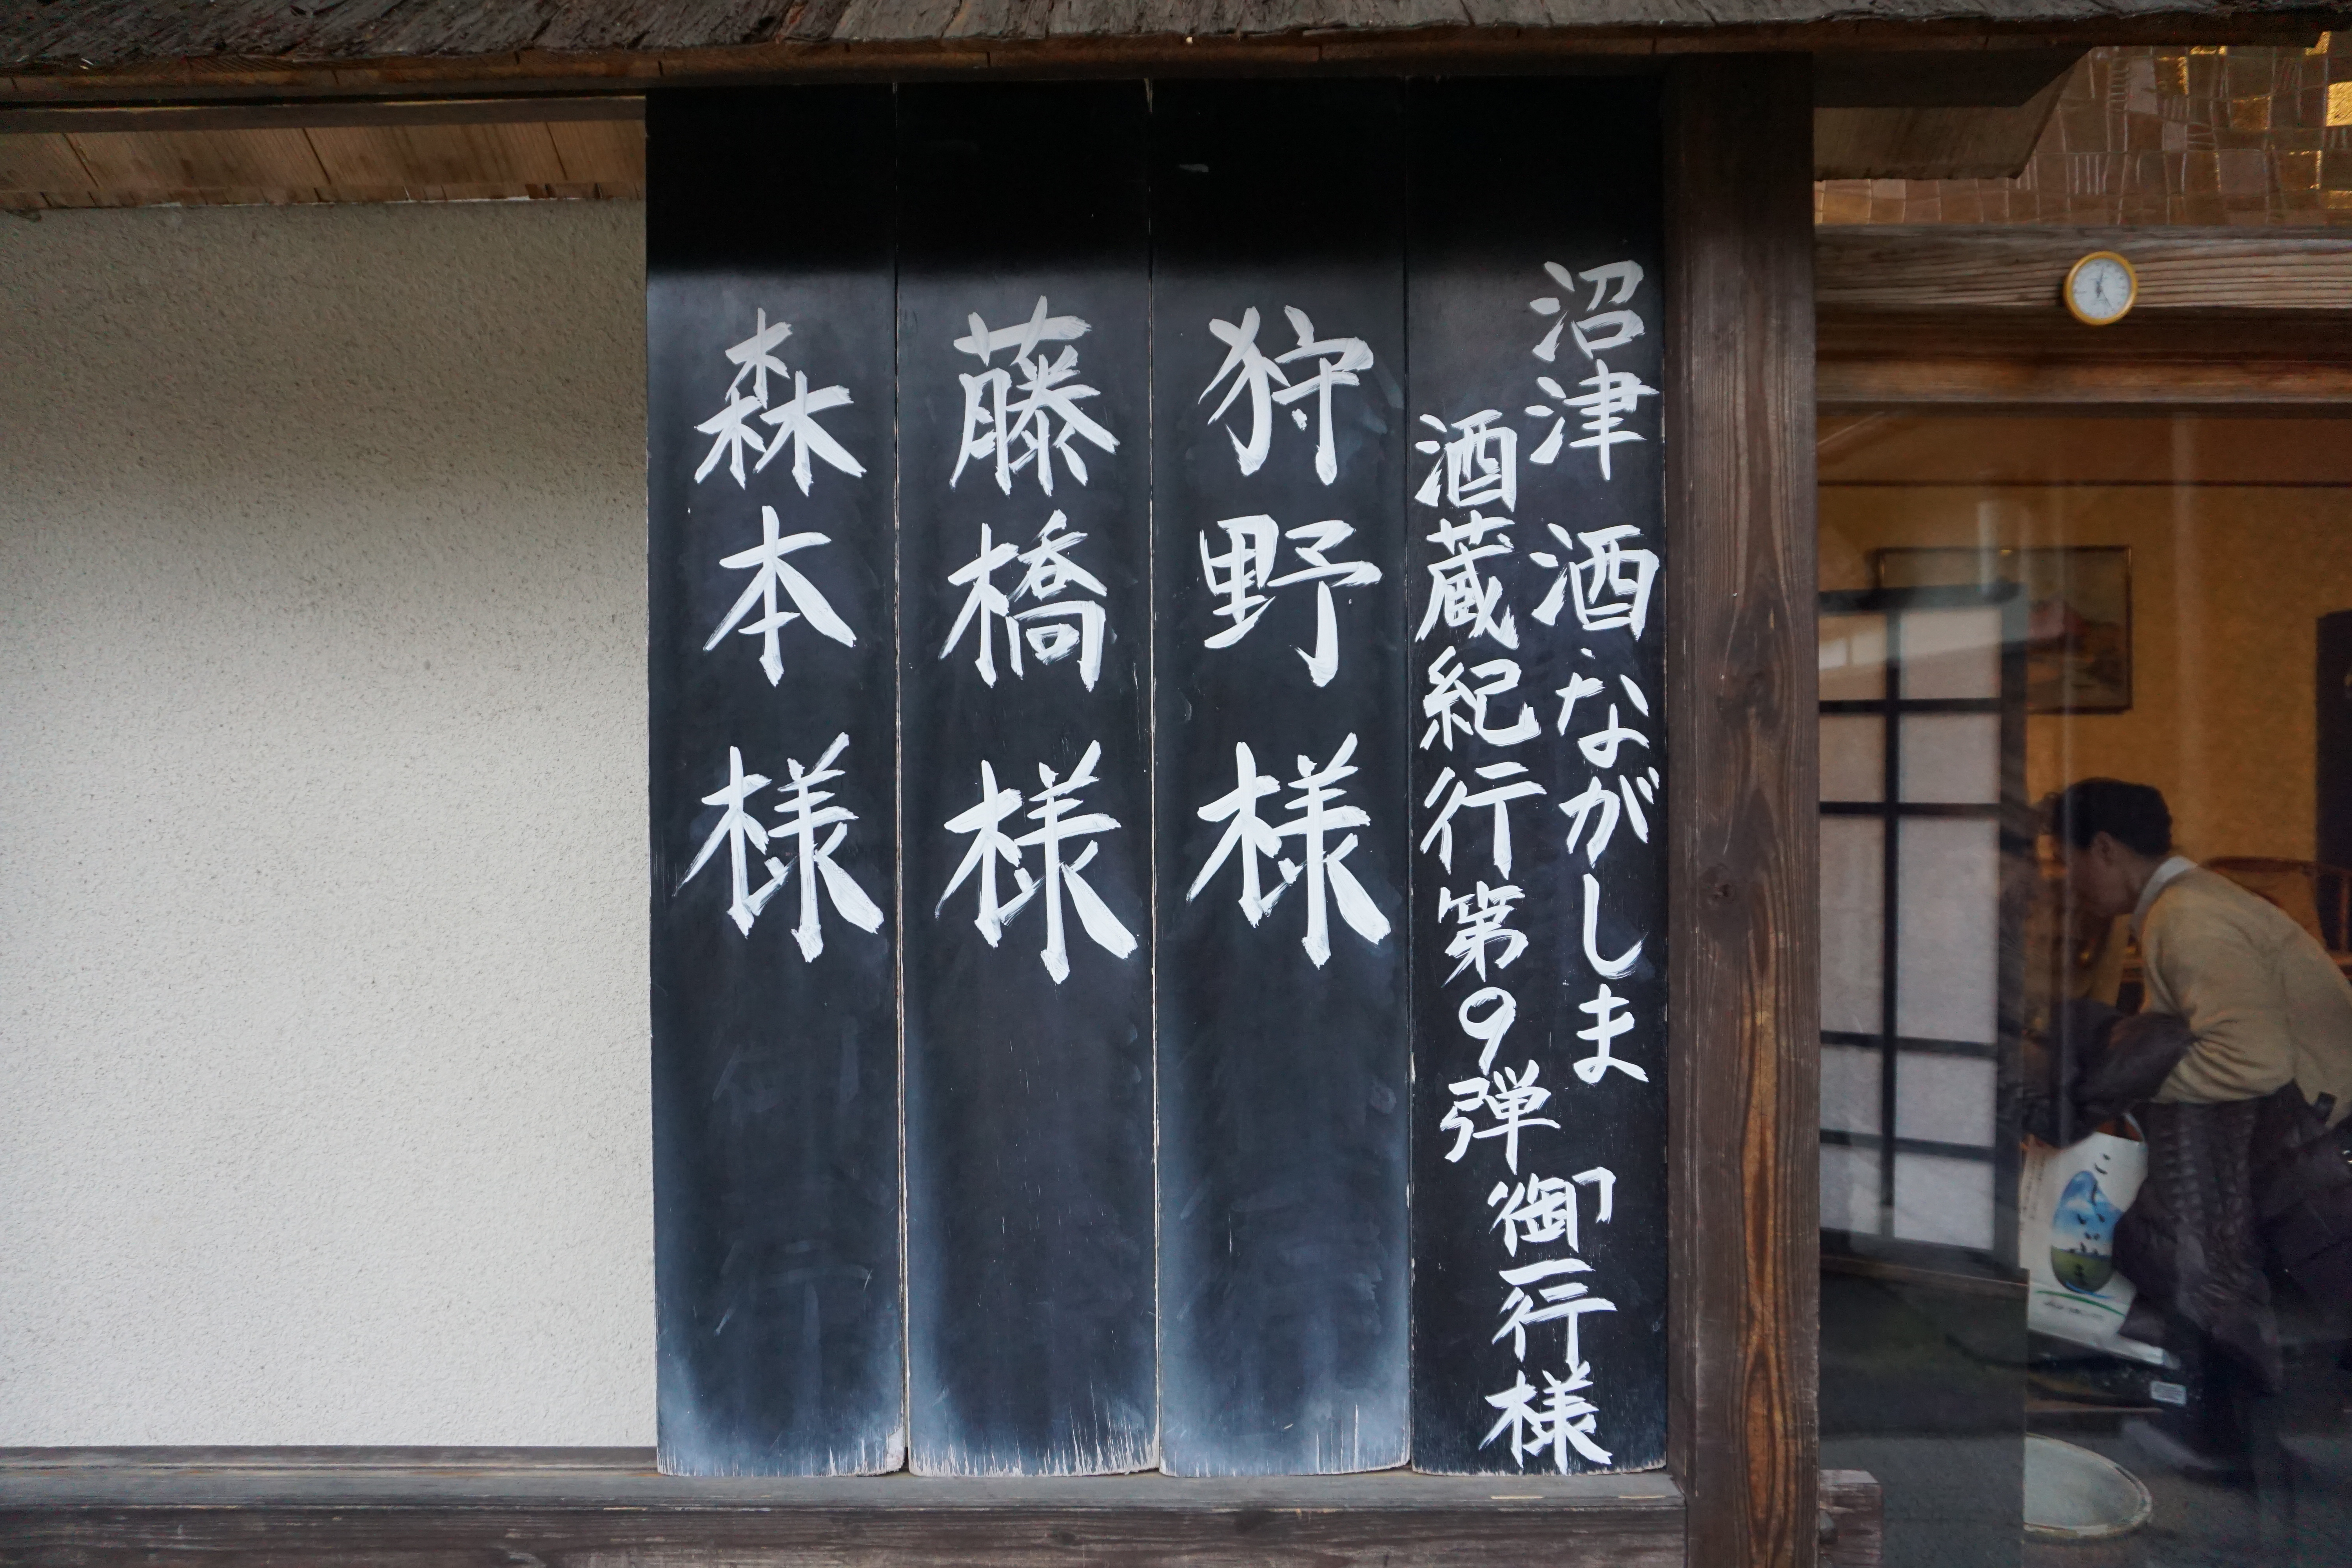 沼津 酒・ながしま
酒蔵紀行第9弾
御一行様
狩野様
藤橋様
森本様